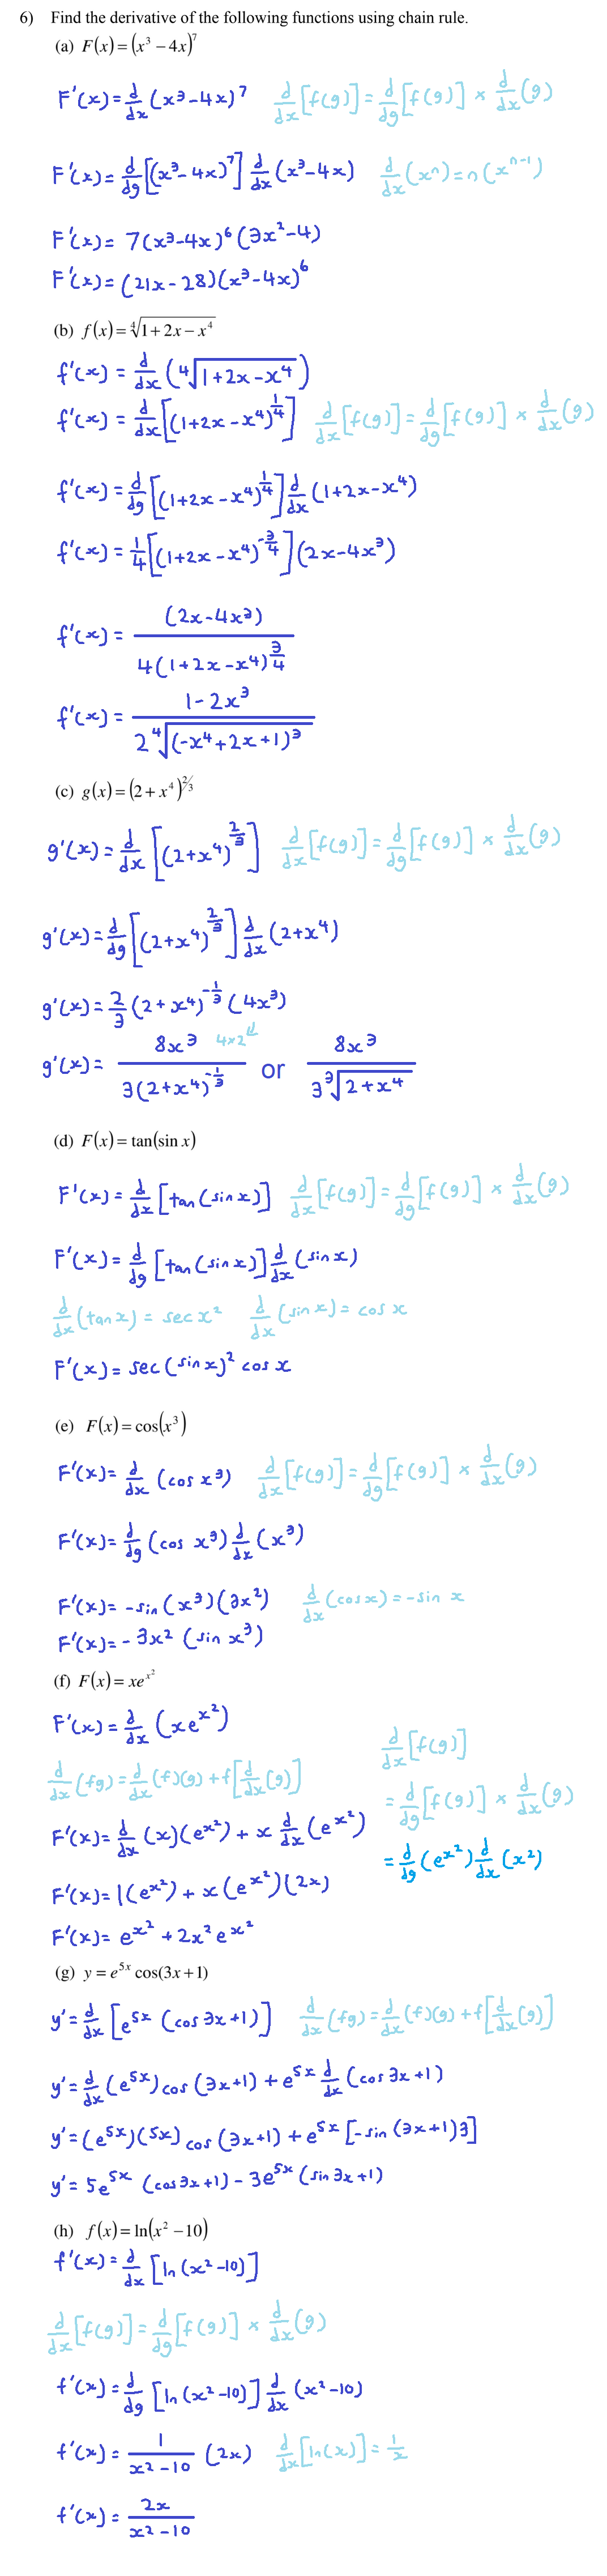 6) Find the derivative of the following functions using chain rule.
(a) F(x) = (x³ − 4x)⁷
F'(x) = d/dx (x³ − 4x)⁷   d/dx [f(g)] = d/dg [f(g)] × d/dx (g)
F'(x) = d/dg [(x³ − 4x)⁷] d/dx (x³ − 4x)   d/dx (xⁿ) = n(xⁿ⁻¹)
F'(x) = 7(x³ − 4x)⁶ (3x² − 4)
F'(x) = (21x − 28)(x³ − 4x)⁶
(b) f(x) = ⁴√(1 + 2x − x⁴)
f'(x) = d/dx (⁴√(1 + 2x − x⁴))
f'(x) = d/dx [(1 + 2x − x⁴)^(1/4)]   d/dx [f(g)] = d/dg [f(g)] × d/dx (g)
f'(x) = d/dg [(1 + 2x − x⁴)^(1/4)] d/dx (1 + 2x − x⁴)
f'(x) = 1/4 [(1 + 2x − x⁴)^(−3/4)] (2x − 4x³)
f'(x) = (2x − 4x³) / 4(1 + 2x − x⁴)^(3/4)
f'(x) = 1 − 2x³ / 2 ⁴√((−x⁴ + 2x + 1)³)
(c) g(x) = (2 + x⁴)^(2/3)
g'(x) = d/dx [(2 + x⁴)^(2/3)]   d/dx [f(g)] = d/dg [f(g)] × d/dx (g)
g'(x) = d/dg [(2 + x⁴)^(2/3)] d/dx (2 + x⁴)
g'(x) = 2/3 (2 + x⁴)^(−1/3) (4x³)
g'(x) = 8x³ / 3(2 + x⁴)^(−1/3) or 8x³ / 3 ³√(2 + x⁴)   4×2
(d) F(x) = tan(sin x)
F'(x) = d/dx [tan(sin x)]   d/dx [f(g)] = d/dg [f(g)] × d/dx (g)
F'(x) = d/dg [tan(sin x)] d/dx (sin x)
d/dx (tan x) = sec x²   d/dx (sin x) = cos x
F'(x) = sec(sin x)² cos x
(e) F(x) = cos(x³)
F'(x) = d/dx (cos x³)   d/dx [f(g)] = d/dg [f(g)] × d/dx (g)
F'(x) = d/dg (cos x³) d/dx (x³)
F'(x) = −sin(x³)(3x²)   d/dx (cos x) = −sin x
F'(x) = −3x² (sin x³)
(f) F(x) = xe^(x²)
F'(x) = d/dx (xe^(x²))
d/dx [f(g)]
d/dx (fg) = d/dx (f)(g) + f[d/dx (g)]
= d/dg [f(g)] × d/dx (g)
F'(x) = d/dx (x)(e^(x²)) + x d/dx (e^(x²))
= d/dg (e^(x²)) d/dx (x²)
F'(x) = 1(e^(x²)) + x(e^(x²))(2x)
F'(x) = e^(x²) + 2x² e^(x²)
(g) y = e^(5x) cos(3x + 1)
y' = d/dx [e^(5x) (cos 3x + 1)]   d/dx (fg) = d/dx (f)(g) + f[d/dx (g)]
y' = d/dx (e^(5x)) cos (3x + 1) + e^(5x) d/dx (cos 3x + 1)
y' = (e^(5x))(5x) cos (3x + 1) + e^(5x) [−sin (3x + 1)3]
y' = 5e^(5x) (cos 3x + 1) − 3e^(5x) (sin 3x + 1)
(h) f(x) = ln(x² − 10)
f'(x) = d/dx [ln (x² − 10)]
d/dx [f(g)] = d/dg [f(g)] × d/dx (g)
f'(x) = d/dg [ln (x² − 10)] d/dx (x² − 10)
f'(x) = 1 / x² − 10 (2x)   d/dx [ln(x)] = 1/x
f'(x) = 2x / x² − 10